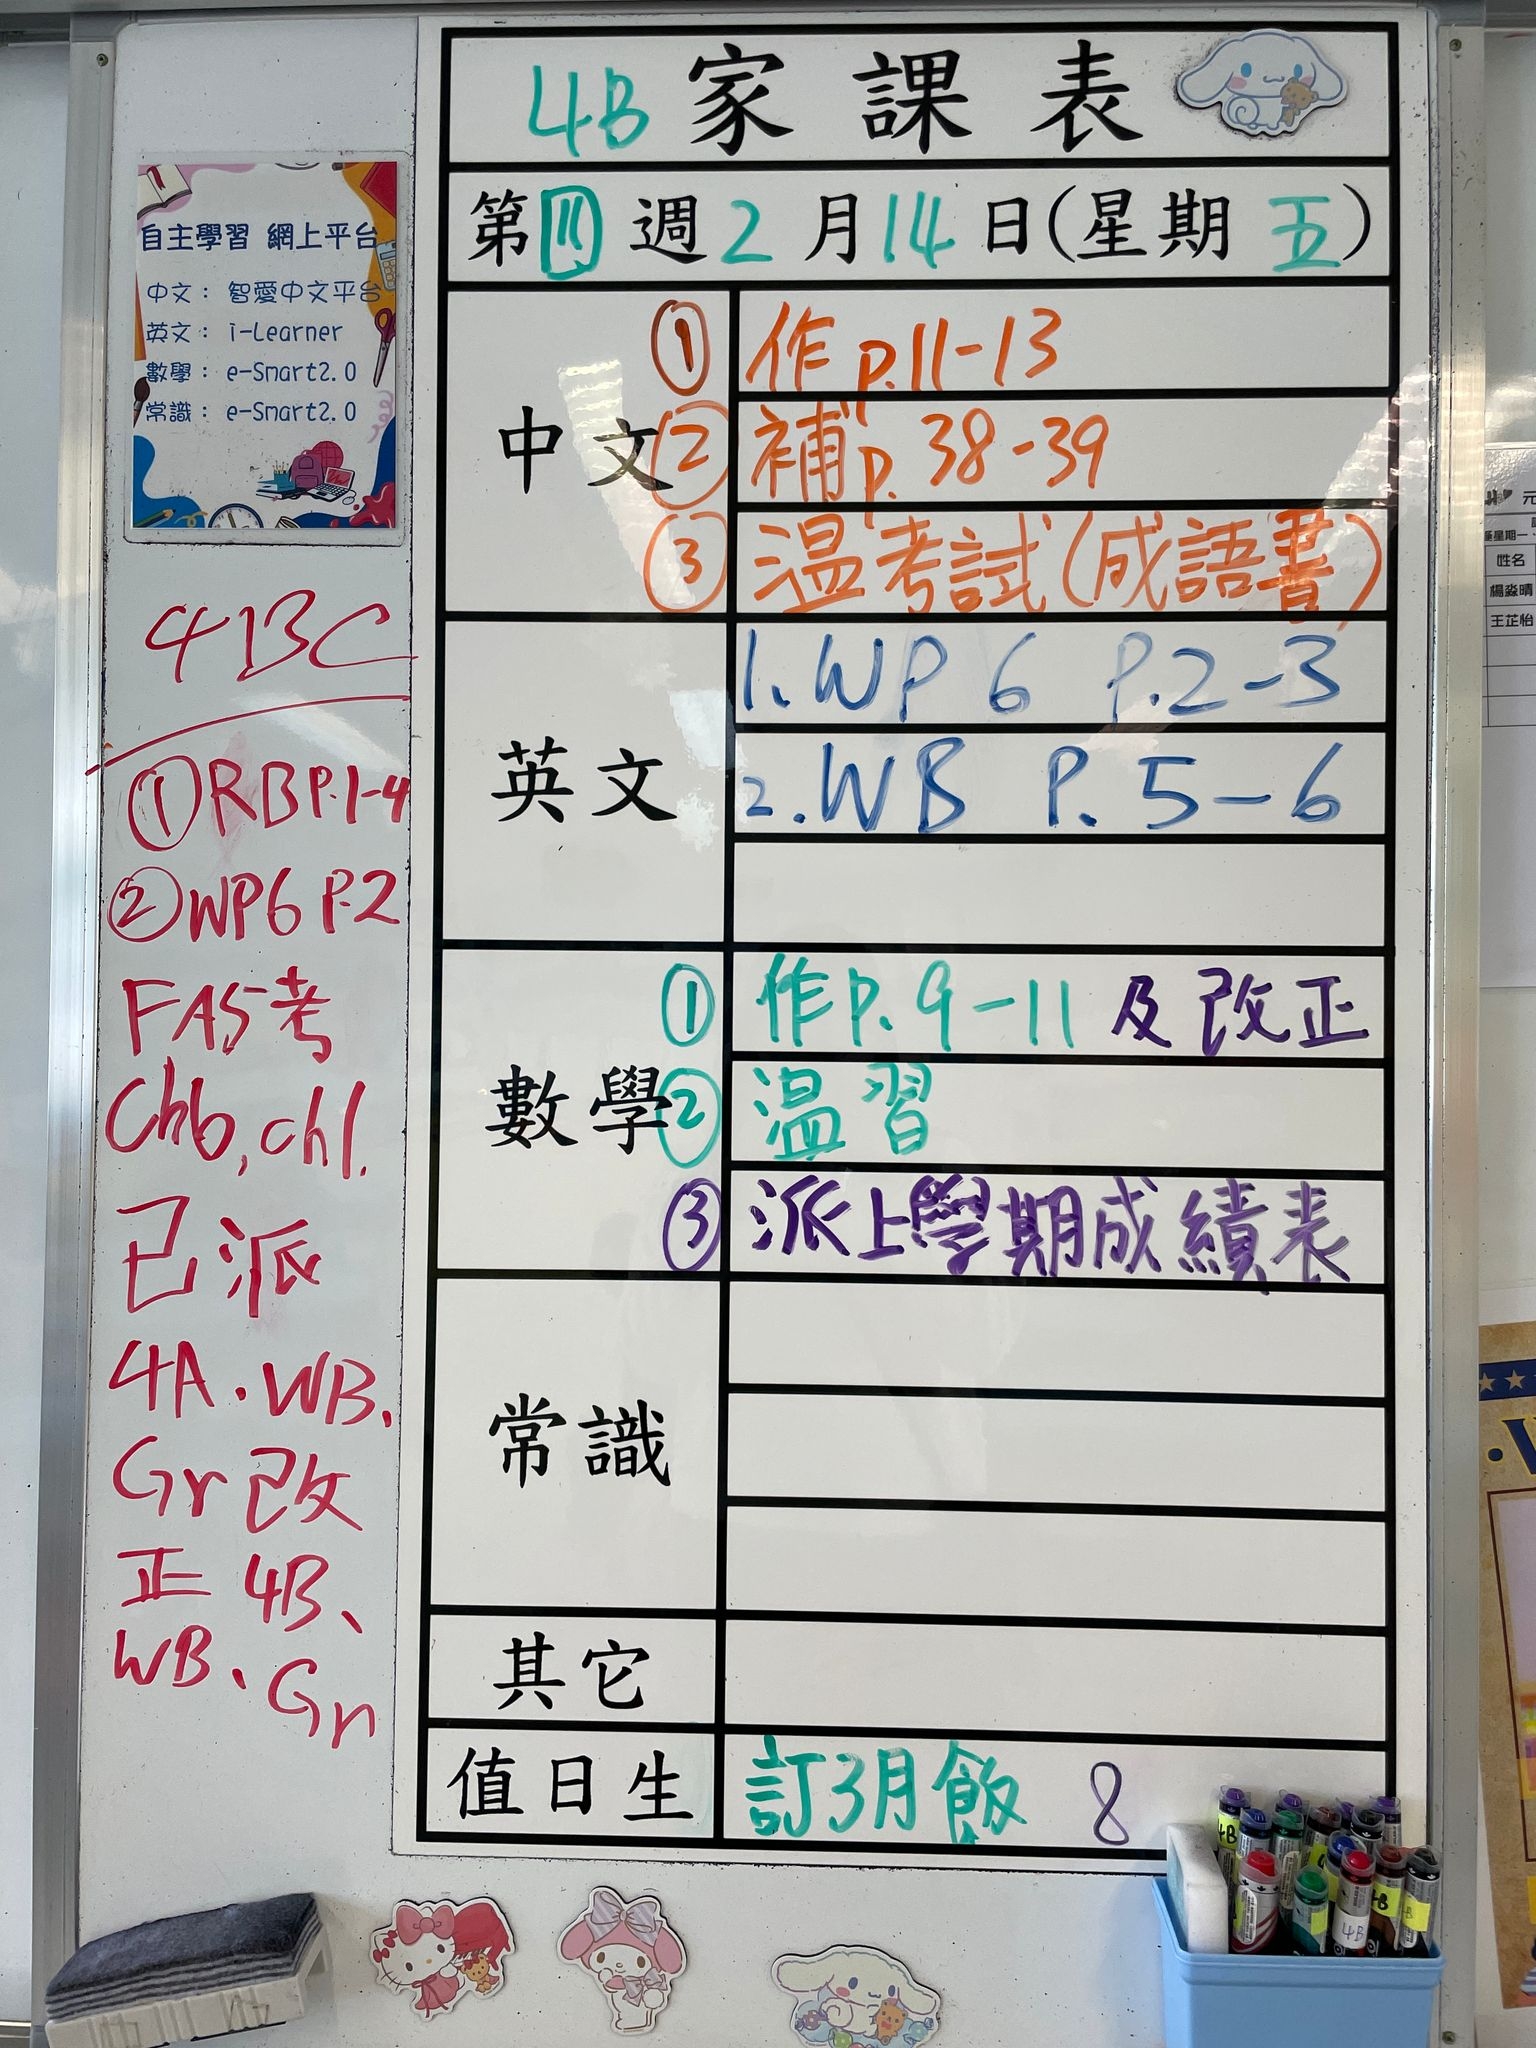 4B 家課表
第四週2月14日(星期五)
自主學習 網上平台
中文： 智愛中文平台
英文： i-Learner
數學： e-Smart2.0
常識： e-Smart2.0
中文
① 作 p.11-13
② 補 p.38-39
③ 温考試(成語書)
英文
1. WP 6 P.2-3
2. WB P.5-6
數學
① 作P.9-11 及改正
② 温習
③ 派上學期成績表
常識
其它
值日生 訂3月飯 8
4BC
① RB P.1-4
② WP6 P.2
FAS考
Ch6, ch1.
已派
4A．WB.
Gr改
正 4B、
WB、Gr
元
姓名
楊淼晴
王芷怡
4B
4B